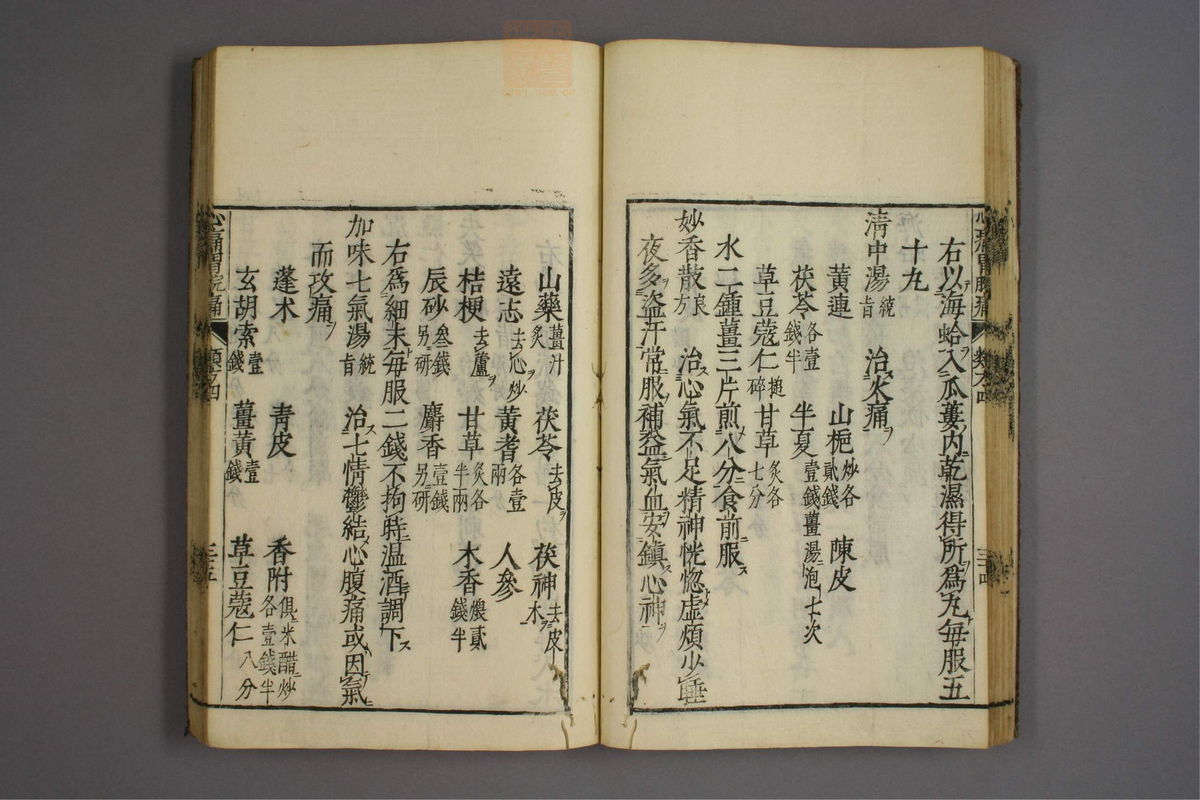 右以海蛤入瓜蔞内乾濕得所爲丸毎服五
十丸
清中湯統旨 治火痛
黄連 山梔炒各貳錢 陳皮
茯苓各壹錢半 半夏壹錢薑湯泡七次
草豆蔻仁搥碎 甘草炙各七分
水二鍾薑三片煎八分食前服
妙香散良方 治心氣不足精神恍惚虚煩少睡
夜多盗汗常服補益氣血安鎭心神
山藥薑汁炙 茯苓去皮 茯神去皮木
遠志去心炒 黄耆各壹兩 人參
桔梗去蘆 甘草炙各半兩 木香貳錢半
辰砂叁錢另研 麝香壹錢另研
右爲細末毎服二錢不拘時温酒調下
加味七氣湯統旨 治七情鬱結心腹痛或因氣
而攻痛
蓬朮 青皮 香附俱米醋炒各壹錢半
玄胡索壹錢 薑黄壹錢 草豆蔻仁八分